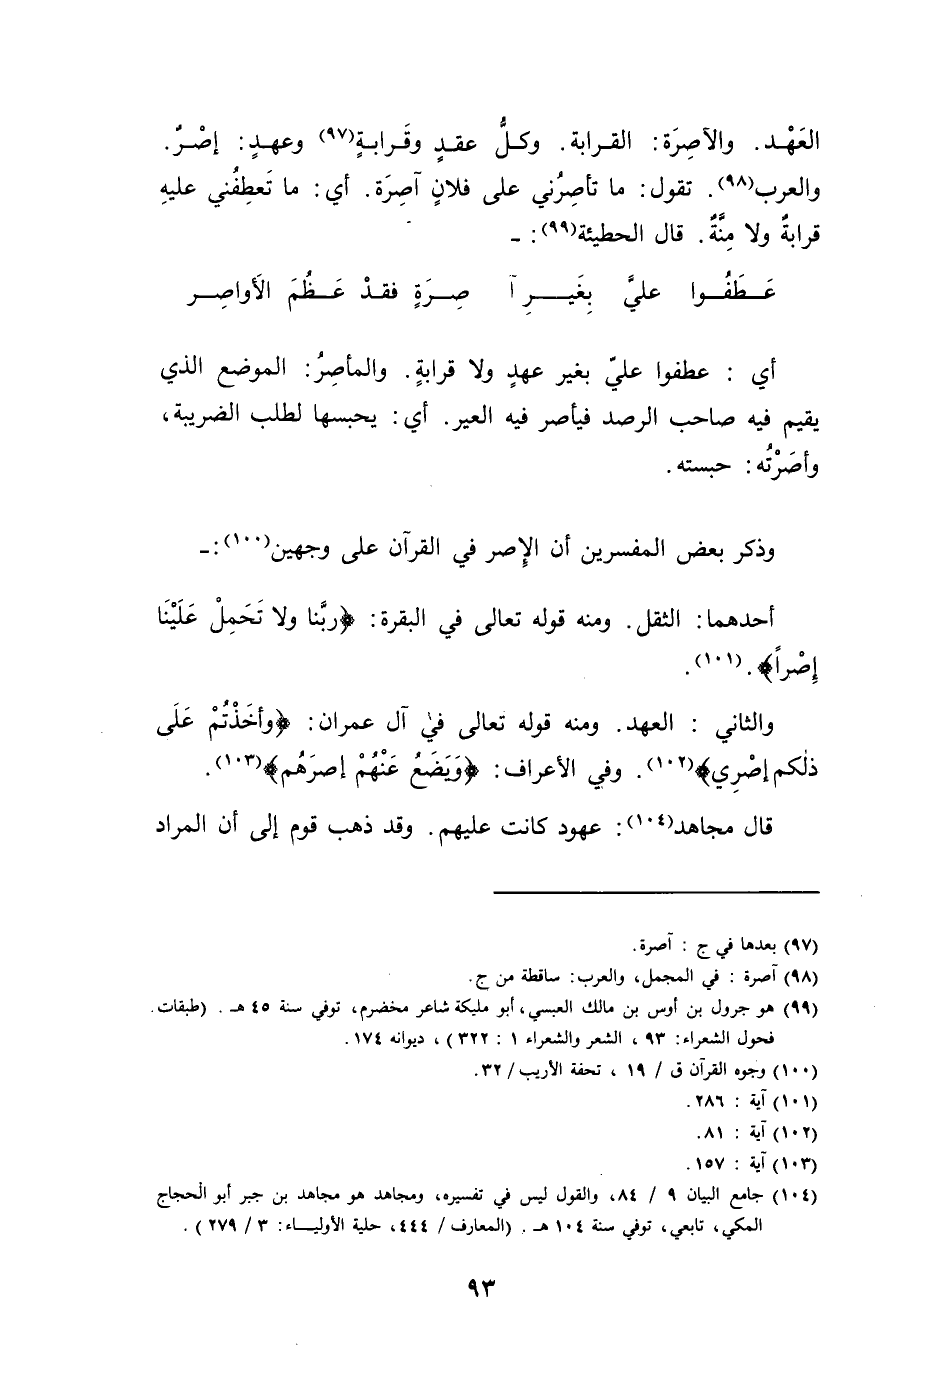 العَهْد. والآصِرَة: القرابة. وكلُّ عقدٍ وقَرابةٍ(٩٧) وعهدٍ: إصْرٌ.
والعرب(٩٨). تقول: ما تأصِرُني على فلانٍ آصِرَة. أي: ما تَعطِفُني عليهِ
قرابةٌ ولا مِنَّةٌ. قال الحطيئة(٩٩): ـ
عَطَفُوا عليَّ بِغَيرِ آ صِرَةٍ فقدْ عَظُمَ الأَواصِر
أي : عطفوا عليّ بغير عهدٍ ولا قرابةٍ. والمأصِرُ: الموضع الذي
يقيم فيه صاحب الرصد فيأصر فيه العير. أي: يحبسها لطلب الضريبة،
وأصَرْتُه: حبسته.
وذكر بعض المفسرين أن الإصر في القرآن على وجهين(١٠٠):ـ
أحدهما: الثقل. ومنه قوله تعالى في البقرة: ﴿ربَّنا ولا تَحَمِلْ عَلَيْنَا
إِصْراً﴾.(١٠١).
والثاني : العهد. ومنه قوله تعالى في آل عمران: ﴿وأخَذْتُمْ عَلَى
ذلكم إصْرِي﴾(١٠٢). وفي الأعراف: ﴿وَيَضَعُ عَنْهُمْ إصرَهُم﴾(١٠٣).
قال مجاهد(١٠٤): عهود كانت عليهم. وقد ذهب قوم إلى أن المراد
(٩٧) بعدها في ج : آصرة.
(٩٨) آصرة : في المجمل، والعرب: ساقطة من ج.
(٩٩) هو جرول بن أوس بن مالك العبسي، أبو مليكة شاعر مخضرم، توفي سنة ٤٥ هـ . (طبقات.
فحول الشعراء: ٩٣ ، الشعر والشعراء ١ : ٣٢٢ ) ، ديوانه ١٧٤ .
(١٠٠) وجوه القرآن ق / ١٩ ، تحفة الأريب/ ٣٢.
(١٠١) آية : ٢٨٦.
(١٠٢) آية : ٨١.
(١٠٣) آية : ١٥٧.
(١٠٤) جامع البيان ٩ / ٨٤، والقول ليس في تفسيره، ومجاهد هو مجاهد بن جبر أبو الحجاج
المكي، تابعي، توفي سنة ١٠٤ هـ . (المعارف/ ٤٤٤، حلية الأولياء: ٣ / ٢٧٩ ) .
٩٣